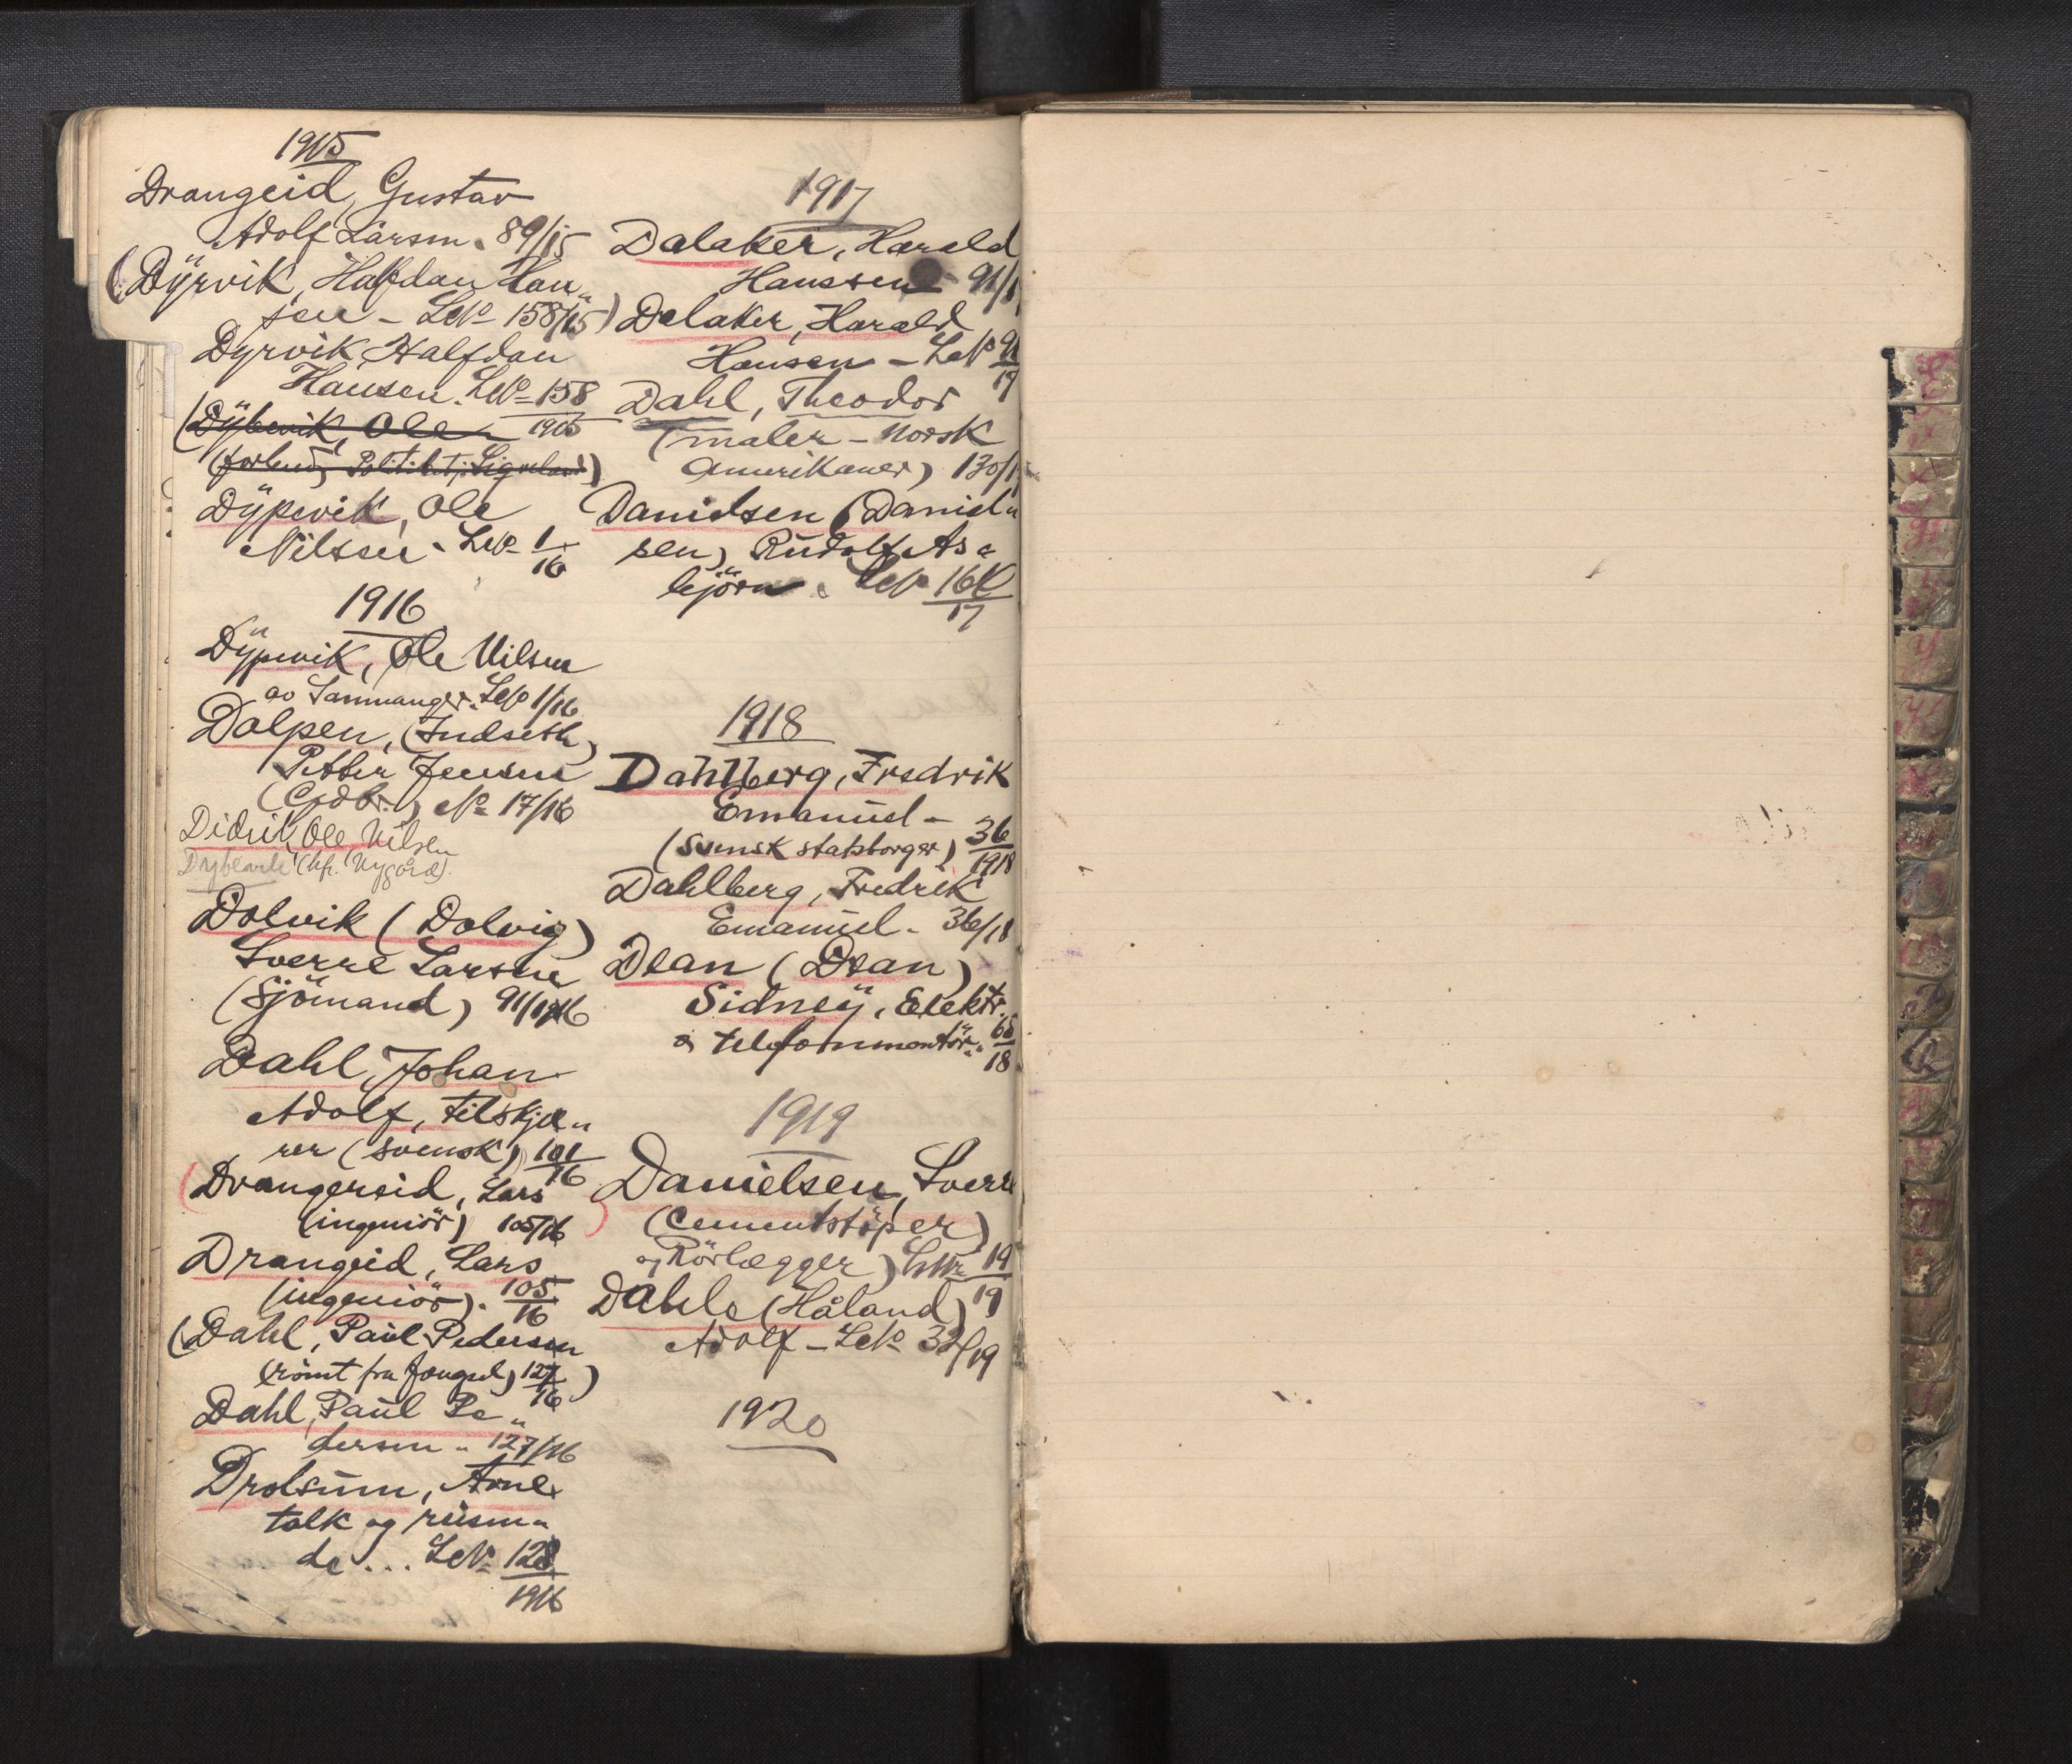 1915
Drangeid, Gustav
Adolf Larsen. 89/15
(Dÿrvik, Halfdan Han„
sen - LNo 158/15)
Dyrvik, Halfdan
Hansen. LNo 158
1915
(Dÿbevik, Ole
Dÿpevik, Ole
Nilsen - LNo 1
16
1916
Dÿpevik, Ole Nilsen
av Sammanger. LNo 1/16
Dalpen, (Indseth)
Petter Jensen
No 17/16
Didrik, Ole Nilsen
Dybevik (kfr. Nygård).
Dolvik (Dolvig)
Sverre Larsen
(Sjömand) 91/1916
Dahl, Johan
Adolf, filskjæ„
rer (svensk) 101
16
Drangereid, Lars
(ingeniör) 105/16
Drangeid, Lars
(ingeniör). 105
16
(Dahl, Paul Pedersen
(römt fra fængsel) 127
16)
Dahl, Paul Pe„
dersen „ 127/16
Drolsum, Arne
tolk og reisen„
de ... LNo 128
1916
1917
Dalaker, Harald
Hanssen 91/1
Dalaker, Harald
Hansen - LNo 91
17
Dahl, Theodor
(maler - Norsk
Amerikaner) 130/1
Danielsen (Daniel„
sen) Rudolf As„
björn. LNo
17
1918
Dahlberg, Fredrik
Emanuel -
(Svensk statsborger) 36
1918
Dahlberg, Fredrik
Emanuel - 36/18
Dean (Dean)
Sidneÿ, Elektr.
& telefonmontör „ 68
18
1919
Danielsen, Sverre
(Cementstöper)
og Rörlægger) LNr 19
19
Dahle (Håland)
Adolf - LNo 32/19
1920